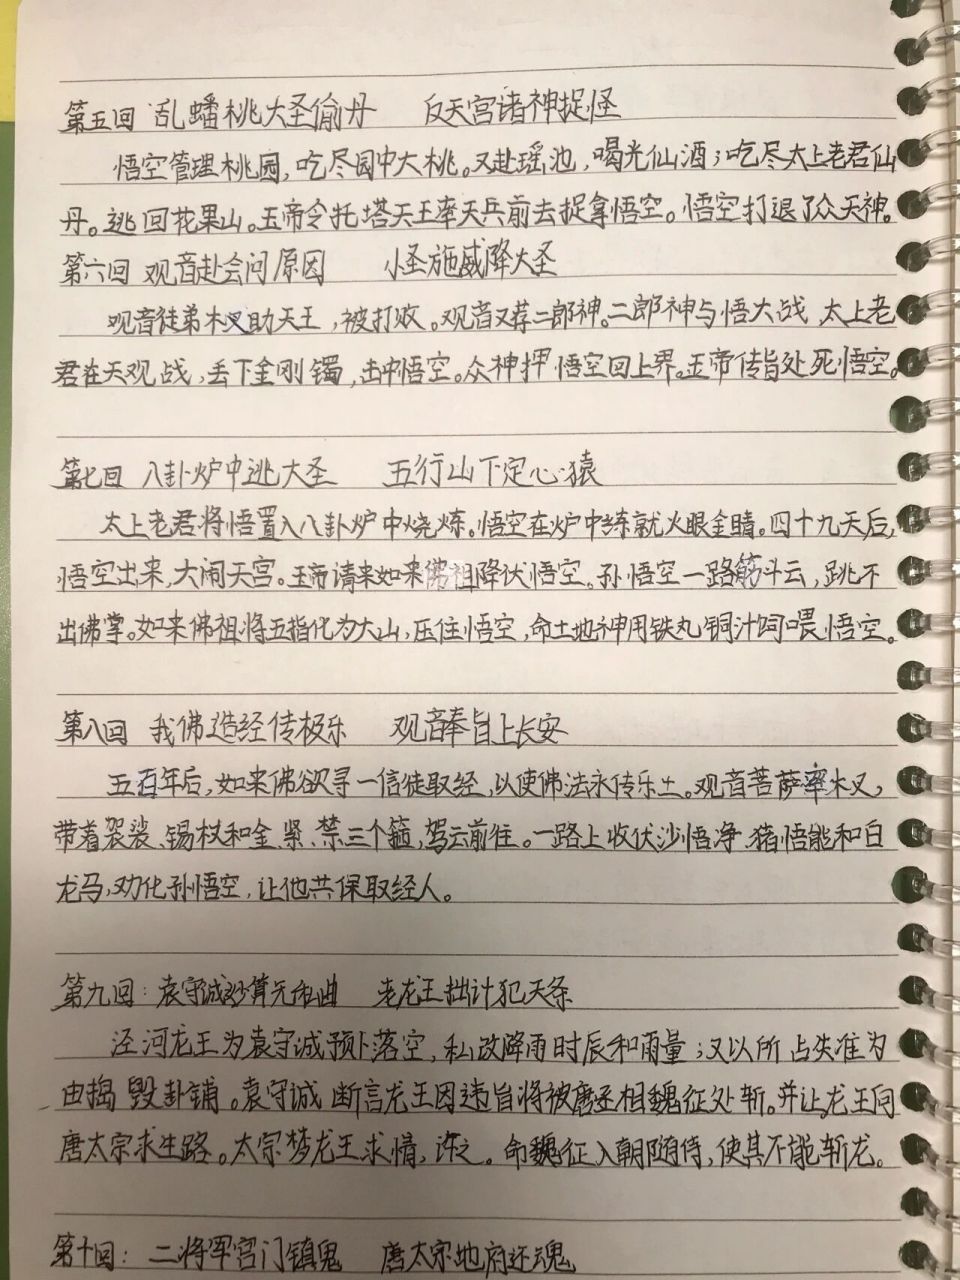 第五回 乱蟠桃大圣偷丹 反天宫诸神捉怪
悟空管理桃园,吃尽园中大桃。又赴瑶池,喝光仙酒;吃尽太上老君仙
丹。逃回花果山。玉帝令托塔天王率天兵前去捉拿悟空。悟空打退了众天神。
第六回 观音赴会问原因 小圣施威降大圣
观音徒弟木叉助天王,被打败。观音又荐二郎神。二郎神与悟大战 太上老
君在天观战,丢下金刚镯,击中悟空。众神押悟空回上界。玉帝传旨处死悟空。
第七回 八卦炉中逃大圣 五行山下定心猿
太上老君将悟置入八卦炉中烧炼。悟空在炉中练就火眼金睛。四十九天后,
悟空出来,大闹天宫。玉帝请来如来佛祖降伏悟空。孙悟空一路筋斗云,跳不
出佛掌。如来佛祖将五指化为大山,压住悟空,命土地神用铁丸铜汁饲喂悟空。
第八回 我佛造经传极乐 观音奉旨上长安
五百年后,如来佛欲寻一信徒取经,以使佛法永传乐土。观音菩萨率木叉,
带着袈裟、锡杖和金、紧、禁三个箍,驾云前往。一路上收伏沙悟净、猪悟能和白
龙马,劝化孙悟空,让他共保取经人。
第九回:袁守诚妙算无私曲 老龙王拙计犯天条
泾河龙王为袁守诚预卜落空,私改降雨时辰和雨量;又以所占失准为
由捣毁卦铺。袁守诚断言龙王因违旨将被唐丞相魏征处斩。并让龙王向
唐太宗求生路。太宗梦龙王求情,许之。命魏征入朝随侍,使其不能斩龙。
第十回:二将军宫门镇鬼 唐太宗地府还魂